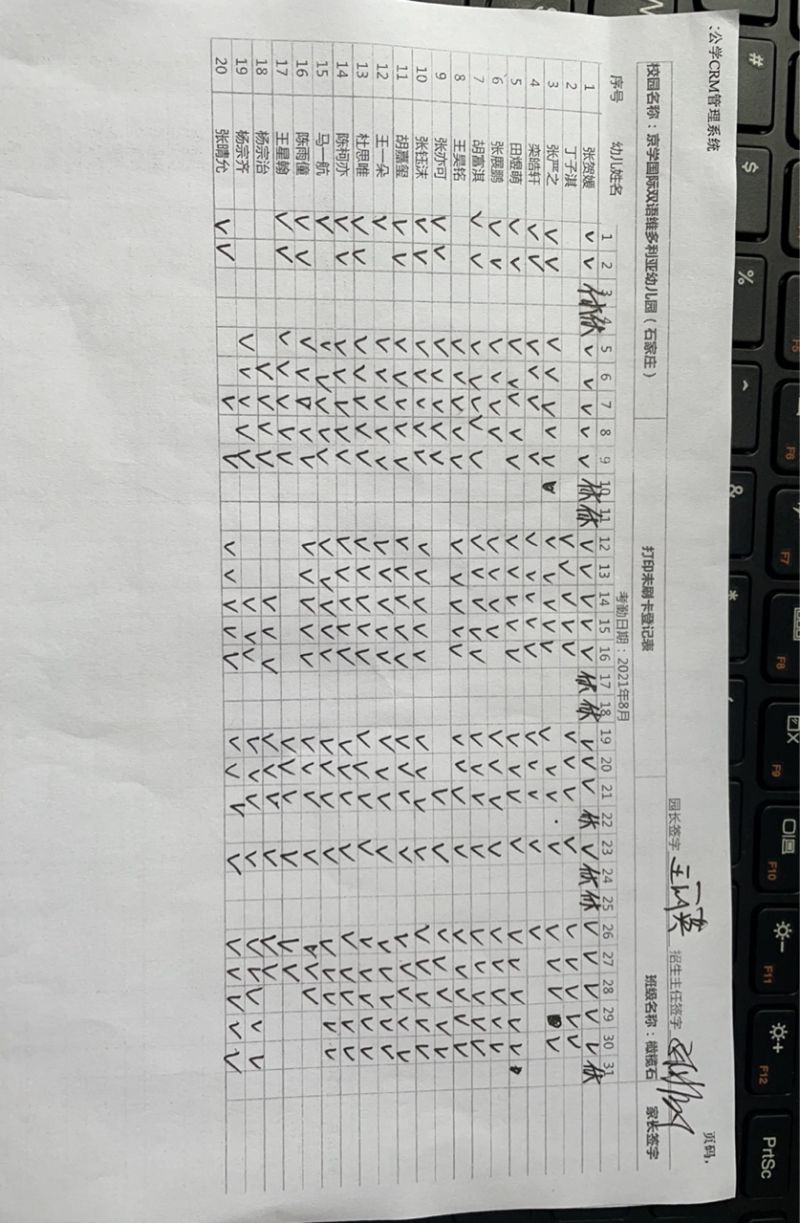 :公学CRM管理系统
页码,
园长签字 招生主任签字
校园名称：京学国际双语维多利亚幼儿园（石家庄） 打印未刷卡登记表 班级名称：橄榄石 家长签字
考勤日期：2021年8月
序号 幼儿姓名 1 2 3 4 5 6 7 8 9 10 11 12 13 14 15 16 17 18 19 20 21 22 23 24 25 26 27 28 29 30 31
1 张贺媛 ✓ ✓ 休 休 ✓ ✓ ✓ ✓ ✓ 休 休 ✓ ✓ ✓ ✓ ✓ 休 休 ✓ ✓ ✓ 休 ✓ 休 休 ✓ ✓ ✓ ✓ ✓ 休
2 丁子淇
3 张严之
4 栾皓轩
5 田煜萌
6 张展鹏
7 胡富淇
8 王昊铭
9 张亦可
10 张钰沫
11 胡嘉玺
12 王一朵
13 杜思唯
14 陈柯亦
15 马一航
16 陈雨僮
17 王星翰
18 杨宗治
19 杨宗齐
20 张晴允
#
$
%
^
&
*
F5
F6
F7
F8
F9
F10
F11
F12
PrtSc